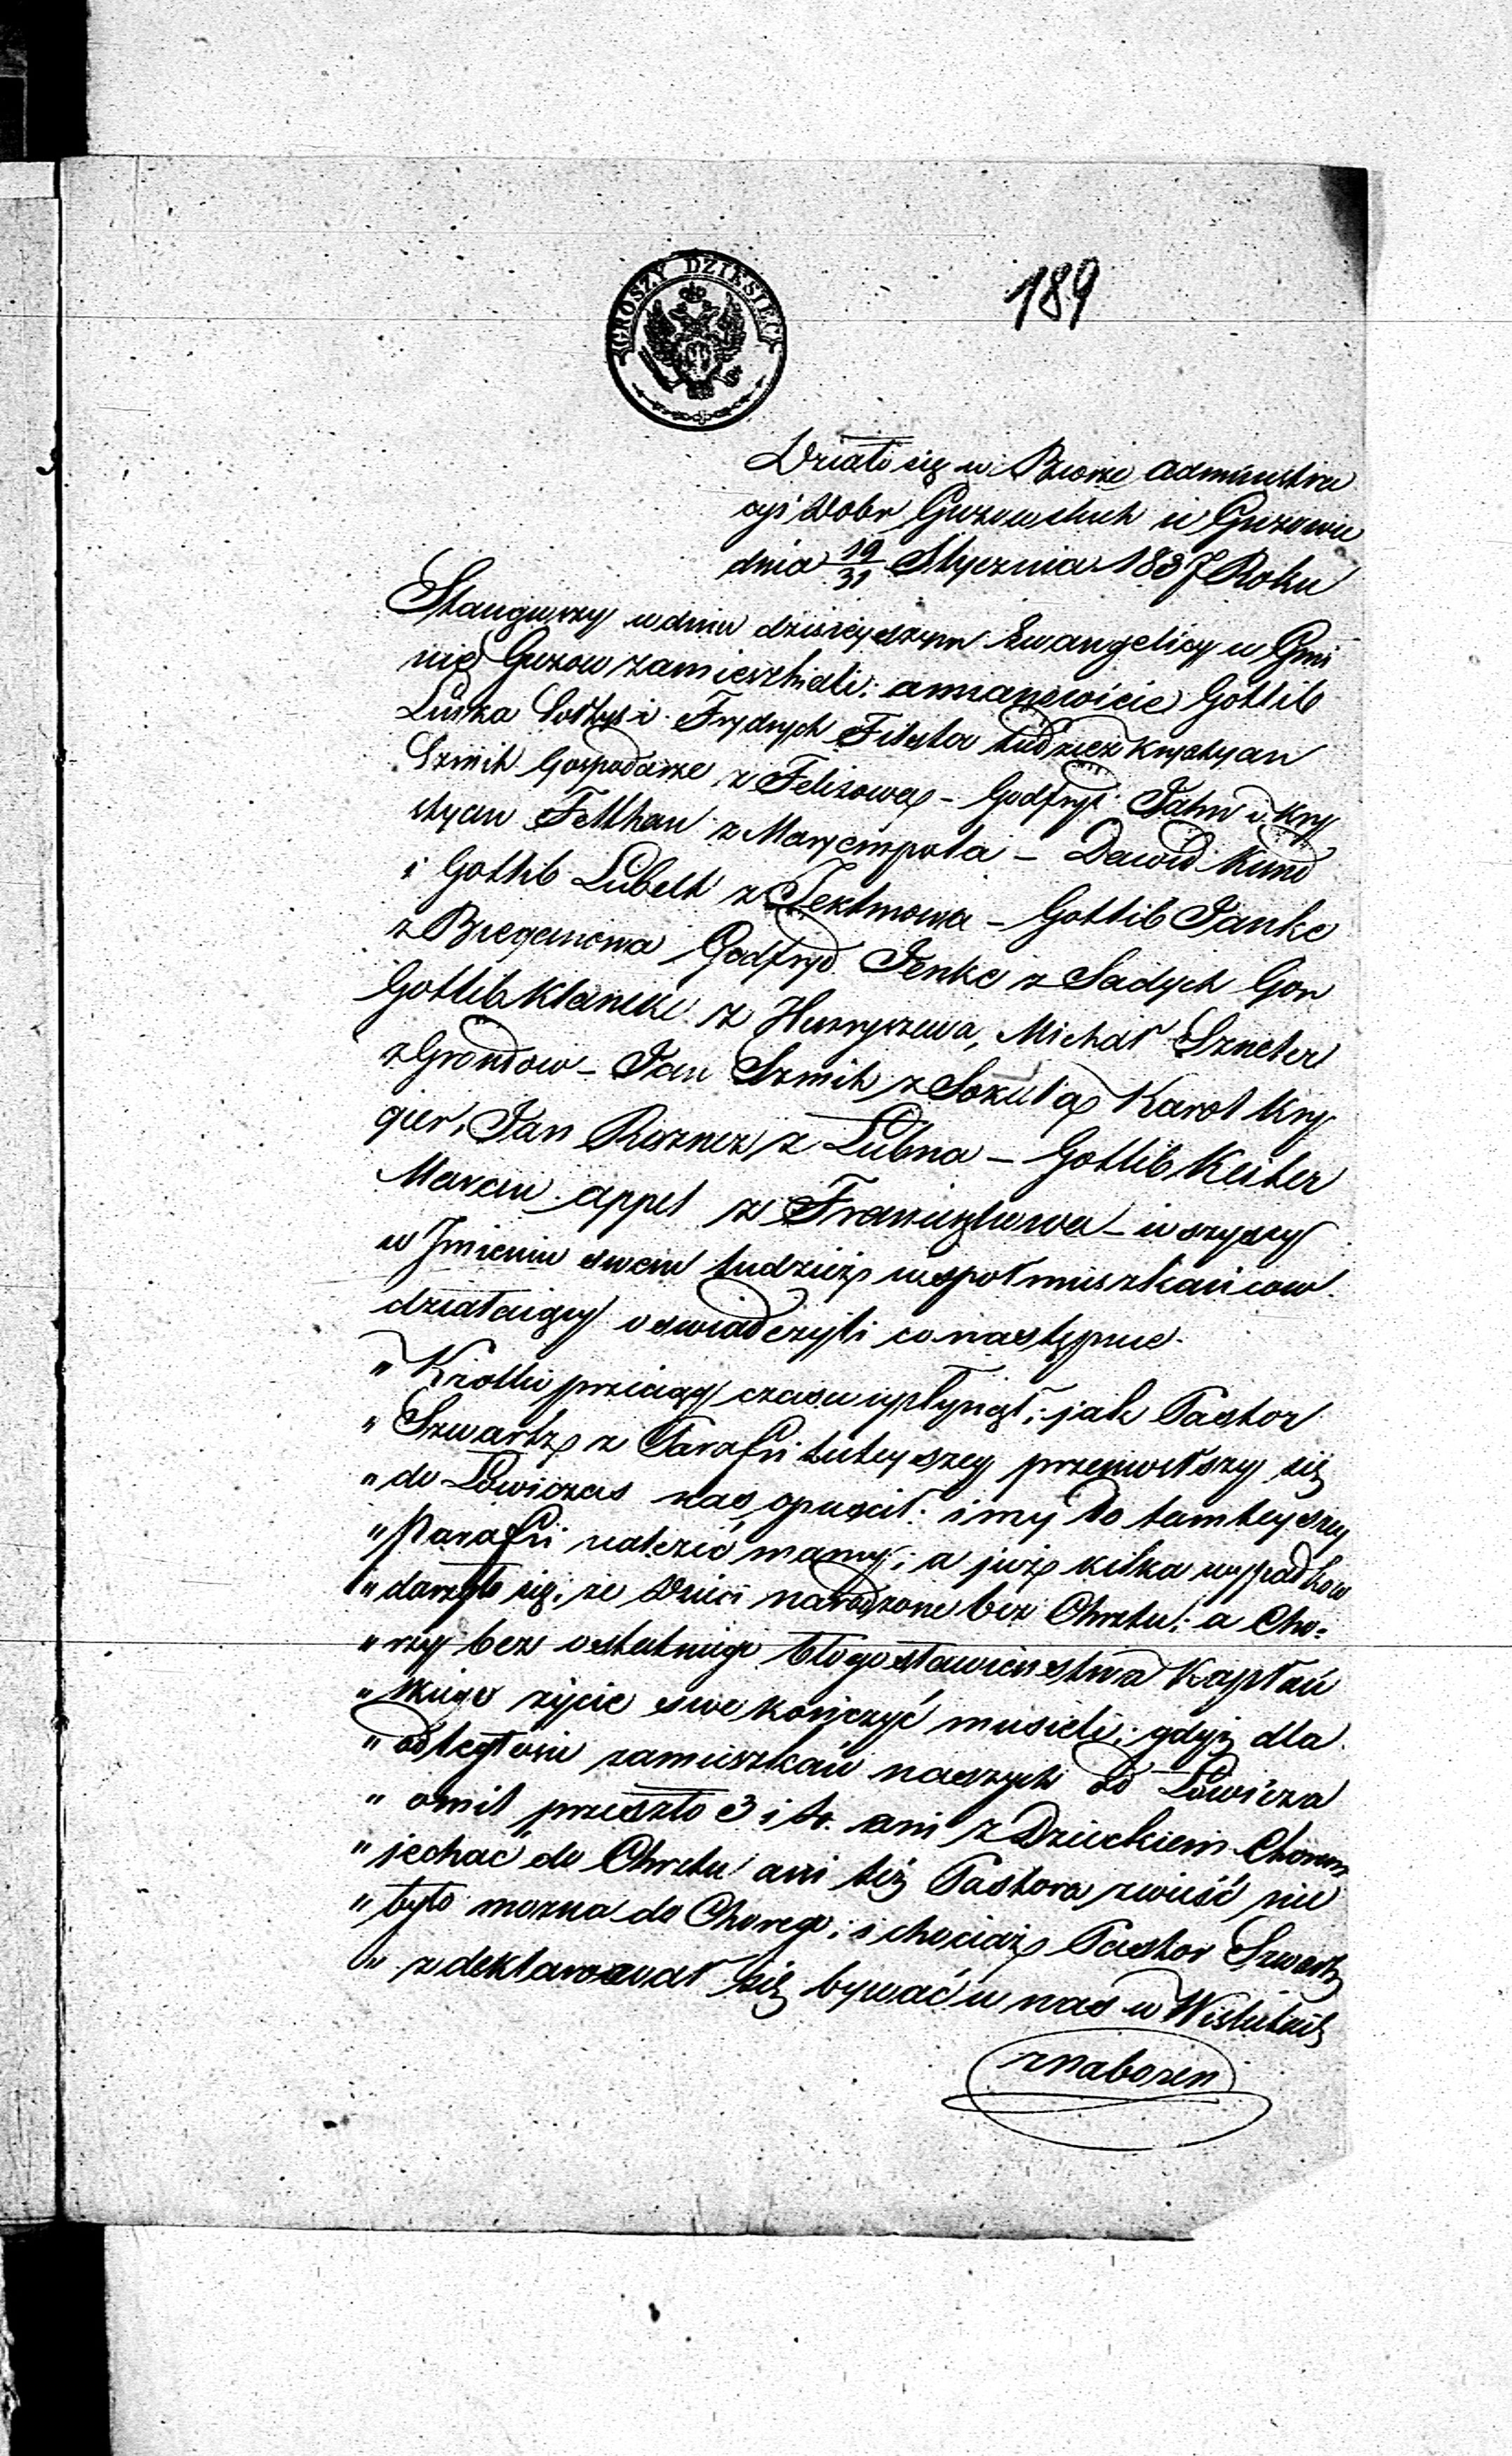 GROSZY DZIESIĘĆ
189
Działo się w Biorze Administra
cyi Dobr Guzowskich w Guzowie
dnia 19/31 Stycznia 1837 Roku
Stanąwszy w dniu dzisieyszym Ewangelicy w Gmi
nie Guzow zamieszkali: a mianowicie Gottlib
Luska Sołtys i Frydrych Filster tudzież Krystyan
Szmit Gospodarze z Felixowa – Godfryd Jahn i Kry
styan Feldhan z Maryempola – Dawid Kund
i Gottlib Lubelt z Teklinowa – Gottlib Janke
z Bieganowa Godfryd Jenke z Sadych Gor
Gottlib Klancke z Hurnyszewa, Michał Szneter
z Grondow – Jan Szmit z Sokuła Karol Kry
gier, Jan Rozner z Lubna – Gottlib Keiter
Marcin Appel z Franciszkowa – wszyscy
w Jmieniu swem tudzież wspołmieszkańcow
działaiący oswiadczyli co następuie.
„ Krotki przeciąg czasu upłynął; jak Pastor
„ Szwartz z Parafii tuteyszey przeniosłszy się
„ do Łowicza nas opuscił: i my do tamteyszey
„ Parafii należeć mamy; a już kilka wypadkow
„ darzyło się, że Dzieci narodzone bez Chrztu; a Cho=
„ rzy bez ostatniego błogosławieństwa Kapłań
„ skiego życie swe kończyć musieli; gdyż dla
„ odległosci zamieszkań naszych od Łowicza
„ o mil przeszło 3 i 4. ani z Dzieckiem Chorem
„ jechać do Chrztu ani też Pastora zwieść nie
„ było mozna do Chorego; i chociaż Pastor Szwartz
„ zdeklarował się bywać u nas w Wiskitkach
z nabozen